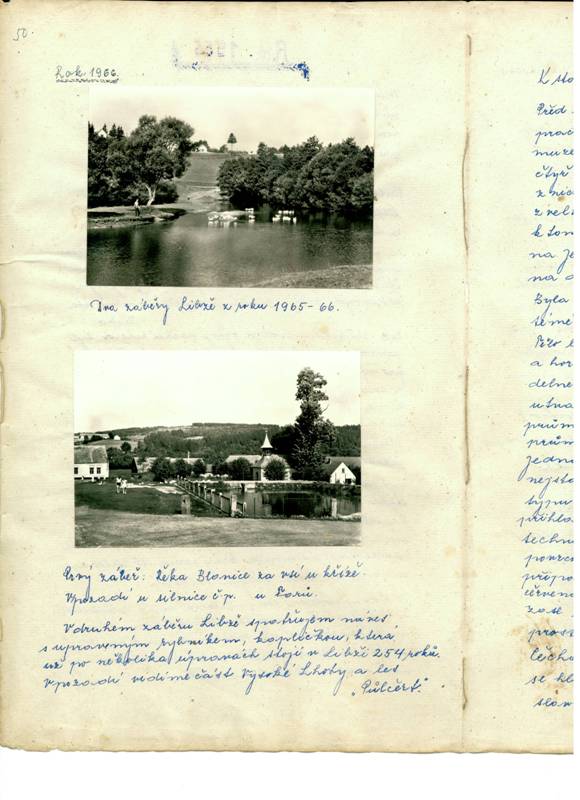 50.
Rok 1966.
Dva záběry Libzě z roku 1965-66.
Prvý záběr: Řeka Blanice za vsí u kříže.
Vpozadí u silnice čp. u Forů.
V druhém záběru Libzě spatřujem náves
s upraveným rybníkem, kapličkou, která,
už po několika úpravách stojí v Libži 254 roků.
Vpozadí vidíme část Vysoké Lhoty a les
„Půlčert."
K sto
Před
prac
muze
čtyř
z nic
z vel
k tom
na je
na
Byla
témě
a hor
delne
utna
prům
prům
jedno
nejsto
typu
přihla
techni
připo
červeno
zase
prosz
se kl
slou